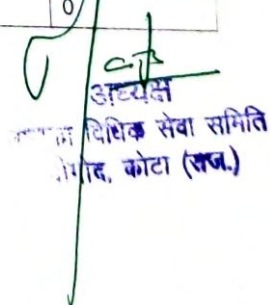 0
अध्यक्ष
विधिक सेवा समिति
कोटा (राज.)